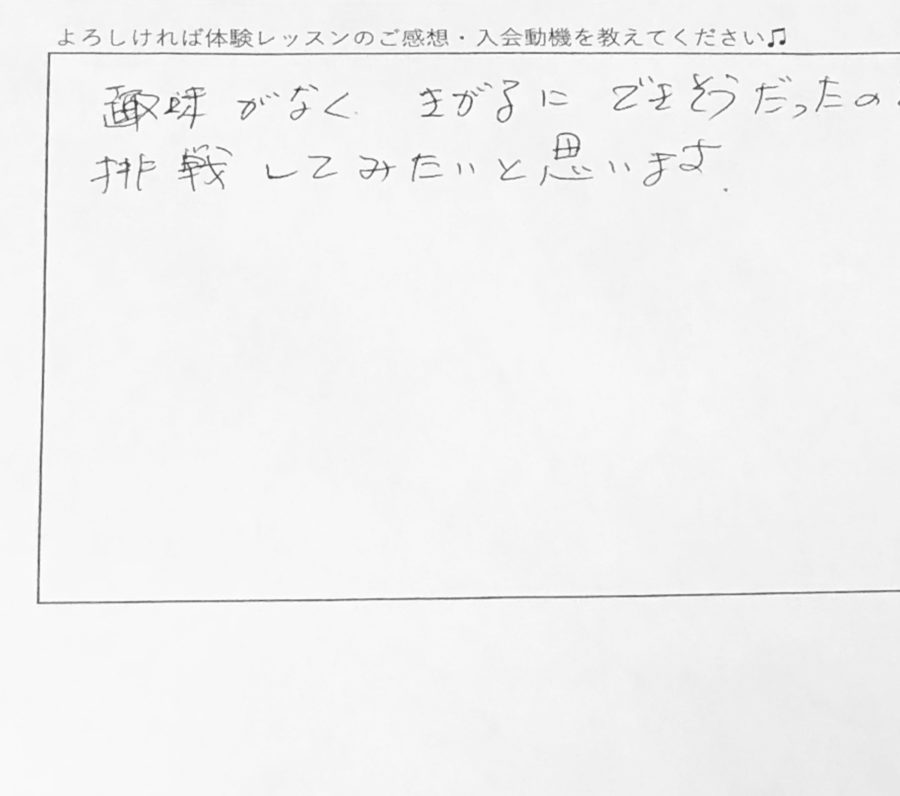 よろしければ体験レッスンのご感想・入会動機を教えてください♫
趣味がなく きがるに できそうだったの
挑戦してみたいと思います.